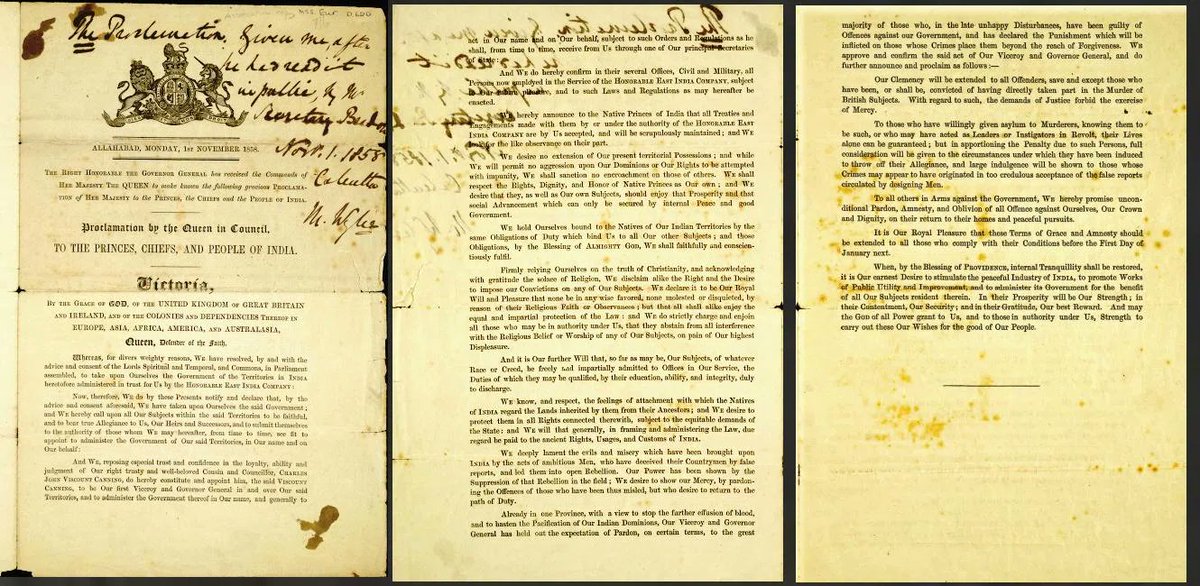 The Proclamation. Given me after
he had read it
in public, by Mr
Secretary Beadon
Novr. 1. 1858
Calcutta
ALLAHABAD, MONDAY, 1ST NOVEMBER 1858.
THE RIGHT HONORABLE THE GOVERNOR GENERAL has received the Commands of
HER MAJESTY THE QUEEN to make known the following gracious PROCLAMA-
TION of HER MAJESTY to the PRINCES, the CHIEFS and the PEOPLE OF INDIA.
Proclamation by the Queen in Council,
TO THE PRINCES, CHIEFS, AND PEOPLE OF INDIA.
Victoria,
BY THE GRACE OF GOD, OF THE UNITED KINGDOM OF GREAT BRITAIN
AND IRELAND, AND OF THE COLONIES AND DEPENDENCIES THEREOF IN
EUROPE, ASIA, AFRICA, AMERICA, AND AUSTRALASIA,
Queen, Defender of the Faith.
Whereas, for divers weighty reasons, WE have resolved, by and with the
advice and consent of the Lords Spiritual and Temporal, and Commons, in Parliament
assembled, to take upon Ourselves the Government of the Territories in INDIA
heretofore administered in trust for Us by the HONORABLE EAST INDIA COMPANY:
Now, therefore, WE do by these Presents notify and declare that, by the
advice and consent aforesaid, WE have taken upon Ourselves the said Government;
and WE hereby call upon all Our Subjects within the said Territories to be faithful,
and to bear true Allegiance to Us, Our Heirs and Successors, and to submit themselves
to the authority of those whom WE may hereafter, from time to time, see fit to
appoint to administer the Government of Our said Territories, in Our name and on
Our behalf:
And WE, reposing especial trust and confidence in the loyalty, ability and
judgment of Our right trusty and well-beloved Cousin and Councillor, CHARLES
JOHN VISCOUNT CANNING, do hereby constitute and appoint him, the said VISCOUNT
CANNING, to be Our first Viceroy and Governor General in and over Our said
Territories, and to administer the Government thereof in Our name, and generally to
act in Our name and on Our behalf, subject to such Orders and Regulations as he
shall, from time to time, receive from Us through one of Our principal Secretaries
of State:
And WE do hereby confirm in their several Offices, Civil and Military, all
Persons now employed in the Service of the HONORABLE EAST INDIA COMPANY, subject
to Our future pleasure, and to such Laws and Regulations as may hereafter be
enacted.
We hereby announce to the Native Princes of India that all Treaties and
Engagements made with them by or under the authority of the HONORABLE EAST
INDIA COMPANY are by Us accepted, and will be scrupulously maintained; and WE
look for the like observance on their part.
We desire no extension of Our present territorial Possessions; and while
WE will permit no aggression upon Our Dominions or Our Rights to be attempted
with impunity, WE shall sanction no encroachment on those of others. WE shall
respect the Rights, Dignity, and Honor of Native Princes as Our own; and WE
desire that they, as well as Our own Subjects, should enjoy that Prosperity and that
social Advancement which can only be secured by internal Peace and good
Government.
WE hold Ourselves bound to the Natives of Our Indian Territories by the
same Obligations of Duty which bind Us to all Our other Subjects; and those
Obligations, by the Blessing of ALMIGHTY GOD, WE shall faithfully and conscien-
tiously fulfil.
Firmly relying Ourselves on the truth of Christianity, and acknowledging
with gratitude the solace of Religion, WE disclaim alike the Right and the Desire
to impose our Convictions on any of Our Subjects. WE declare it to be Our Royal
Will and Pleasure that none be in any wise favored, none molested or disquieted, by
reason of their Religious Faith or Observances; but that all shall alike enjoy the
equal and impartial protection of the Law: and WE do strictly charge and enjoin
all those who may be in authority under Us, that they abstain from all interference
with the Religious Belief or Worship of any of Our Subjects, on pain of Our highest
Displeasure.
And it is Our further Will that, so far as may be, Our Subjects, of whatever
Race or Creed, be freely and impartially admitted to Offices in Our Service, the
Duties of which they may be qualified, by their education, ability, and integrity, duly
to discharge.
WE know, and respect, the feelings of attachment with which the Natives
of INDIA regard the Lands inherited by them from their Ancestors; and WE desire to
protect them in all Rights connected therewith, subject to the equitable demands of
the State; and WE will that generally, in framing and administering the Law, due
regard be paid to the ancient Rights, Usages, and Customs of INDIA.
WE deeply lament the evils and misery which have been brought upon
INDIA by the acts of ambitious Men, who have deceived their Countrymen by false
reports, and led them into open Rebellion. Our Power has been shown by the
Suppression of that Rebellion in the field; WE desire to show our Mercy, by pardon-
ing the Offences of those who have been thus misled, but who desire to return to the
path of Duty.
Already in one Province, with a view to stop the farther effusion of blood,
and to hasten the Pacification of Our Indian Dominions, Our Viceroy and Governor
General has held out the expectation of Pardon, on certain terms, to the great
majority of those who, in the late unhappy Disturbances, have been guilty of
Offences against our Government, and has declared the Punishment which will be
inflicted on those whose Crimes place them beyond the reach of Forgiveness. WE
approve and confirm the said act of Our Viceroy and Governor General, and do
further announce and proclaim as follows:—
Our Clemency will be extended to all Offenders, save and except those who
have been, or shall be, convicted of having directly taken part in the Murder of
British Subjects. With regard to such, the demands of Justice forbid the exercise
of Mercy.
To those who have willingly given asylum to Murderers, knowing them to
be such, or who may have acted as Leaders or Instigators in Revolt, their Lives
alone can be guaranteed; but in apportioning the Penalty due to such Persons, full
consideration will be given to the circumstances under which they have been induced
to throw off their Allegiance, and large indulgence will be shown to those whose
Crimes may appear to have originated in too credulous acceptance of the false reports
circulated by designing Men.
To all others in Arms against the Government, WE hereby promise uncon-
ditional Pardon, Amnesty, and Oblivion of all Offence against Ourselves, Our Crown
and Dignity, on their return to their homes and peaceful pursuits.
It is Our Royal Pleasure that these Terms of Grace and Amnesty should
be extended to all those who comply with their Conditions before the First Day of
January next.
When, by the Blessing of PROVIDENCE, internal Tranquillity shall be restored,
it is Our earnest Desire to stimulate the peaceful Industry of INDIA, to promote Works
of Public Utility and Improvement, and to administer its Government for the benefit
of all Our Subjects resident therein. In their Prosperity will be Our Strength; in
their Contentment, Our Security; and in their Gratitude, Our best Reward. And may
the GOD of all Power grant to Us, and to those in authority under Us, Strength to
carry out these Our Wishes for the good of Our People.